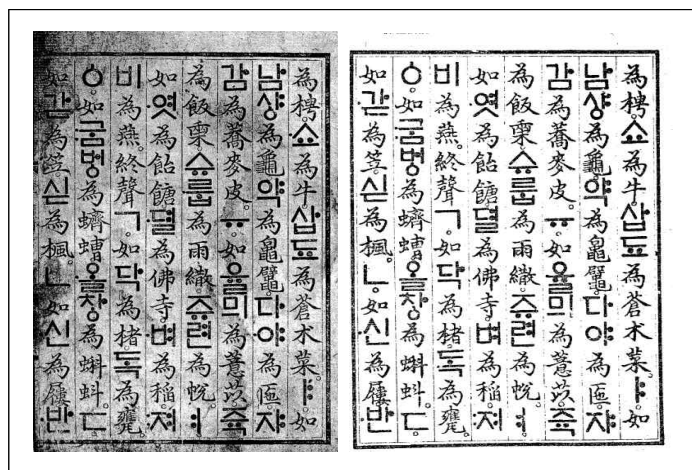 為梬。쇼為牛。삽됴為蒼朮菜。ㅑ。如
남샤ᇰ為龜。약為𪓟鼊。다야為匜。쟈
감為蕎麥皮。ㅠ。如율믜為薏苡。쥭
為飯𣂛。슈룹為雨繖。쥬련為帨。ㅕ。
如·엿為飴餹。뎔為佛寺。·벼為稻。:져
비為燕。終聲ㄱ。如닥為楮。독為甕。
ㆁ。如:굼버ᇰ為蠐螬。·올차ᇰ為蝌蚪。ㄷ。
如·갇為笠。싣為楓。ㄴ。如·신為屨。·반
為梬。쇼為牛。삽됴為蒼朮菜。ㅑ。如
남샤ᇰ為龜。약為𪓟鼊。다야為匜。쟈
감為蕎麥皮。ㅠ。如율믜為薏苡。쥭
為飯𣂛。슈룹為雨繖。쥬련為帨。ㅕ。
如·엿為飴餹。뎔為佛寺。·벼為稻。:져
비為燕。終聲ㄱ。如닥為楮。독為甕。
ㆁ。如:굼버ᇰ為蠐螬。·올차ᇰ為蝌蚪。ㄷ。
如·갇為笠。싣為楓。ㄴ。如·신為屨。·반